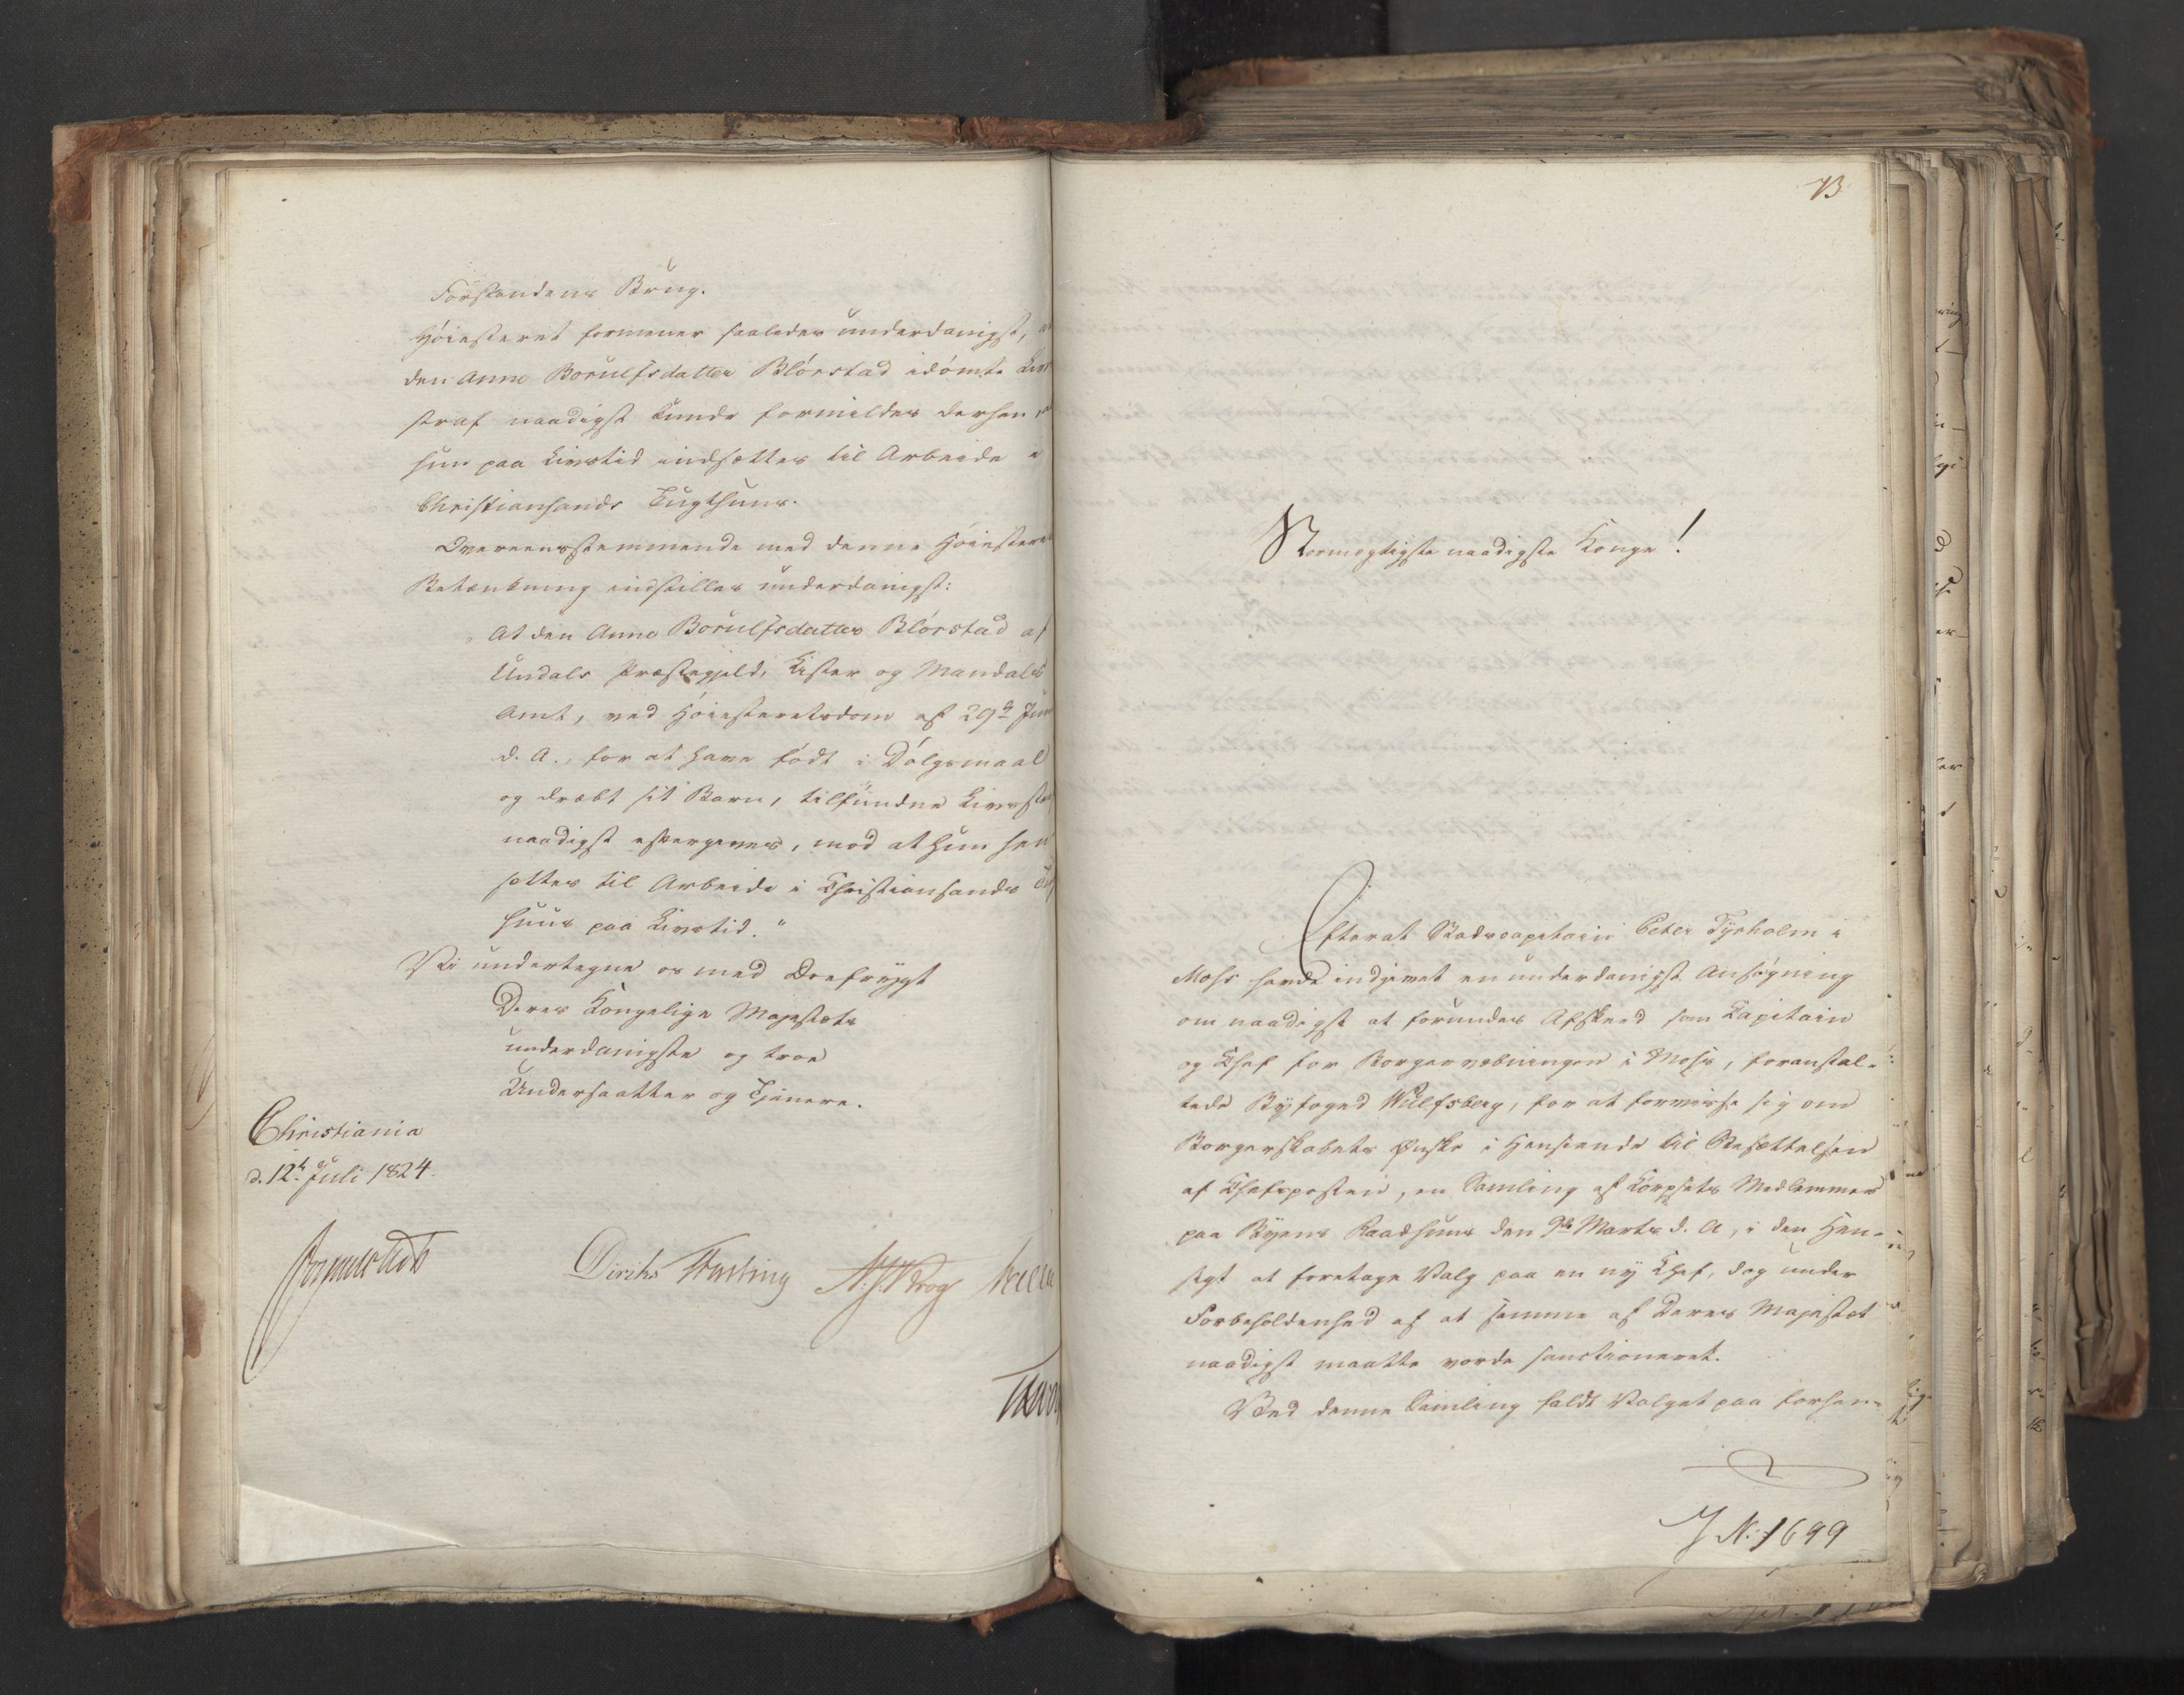 Forstandens Brug.
Höiesteret formener saaledes underdanigst, at
den Anne Borulfsdatter Blörstad idömte Livs
straf naadigst kunde formildes derhen, at
hun paa Livstid indsættes til Arbeide i
Christiansands Tugthuus.
Overeensstemmende med denne Höiesterets
Betænkning indstilles underdanigst:
"At den Anne Borulfsdatter Blörstad af
Undals Præstegjeld, Lister og Mandals
Amt, ved Höiesteretsdom af 29de Juni
d. A., for at have födt i Dölgsmaal
og dræbt sit Barn, tilfundne Livsstraf
naadigst eftergives, mod at hun hen
sættes til Arbeide i Christiansands Tugt
huus paa Livstid."
Vi undertegne os med Dyb frygt
Deres Kongelige Majestæts
underdanigste og troe
Undersaatter og Tjenere.
Christiania
d. 12te Juli 1824.
Diriks Hasting Krog
73
Stormægtigste naadigste Konge!
Efterat Stadscapitain Peter Tyrholm i
Moss havde indgivet en underdanigst Ansögning
om naadigst at forundes Afskeed som Capitain
og Chef for Borgervæbningen i Moss, foranstal-
tede Byfoged Wulfsberg, for at forvisse sig om
Borgerskabets Ønske i Henseende til Besættelsen
af Chefsposten, en Samling af Corpsets Medlemmer
paa Byens Raadhuus den 9de Marts d. A, i den Hen-
sigt at foretage Valg paa en ny Chef, dog under
Forbeholdenhed af at samme af Deres Majestæt
naadigst maatte vorde sanctioneret.
Ved denne Samling faldt Valget paa forhen-
J N: 1699